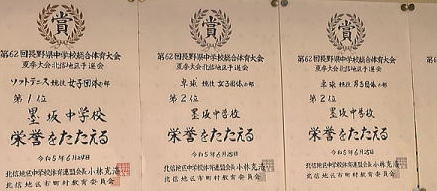 賞
第62回長野県中学校総合体育大会
夏季大会北信地区予選会
ソフトテニス 競技 女子団体の部
第1位
墨坂中学校
栄誉をたたえる
令和5年6月24日
北信地区中学校体育連盟会長 小林克浩
北信地区市町村教育委員会
賞
第62回長野県中学校総合体育大会
夏季大会北信地区予選会
卓球 競技 女子団体の部
第2位
墨坂中学校
栄誉をたたえる
令和5年6月25日
北信地区中学校体育連盟会長 小林克
北信地区市町村教育委員会
賞
第62回長野県中学校総合体育大会
夏季大会北信地区予選会
卓球 競技 男子団体の部
第2位
墨坂中学校
栄誉をたたえる
令和5年6月25日
北信地区中学校体育連盟会長 小林克
北信地区市町村教育委員会